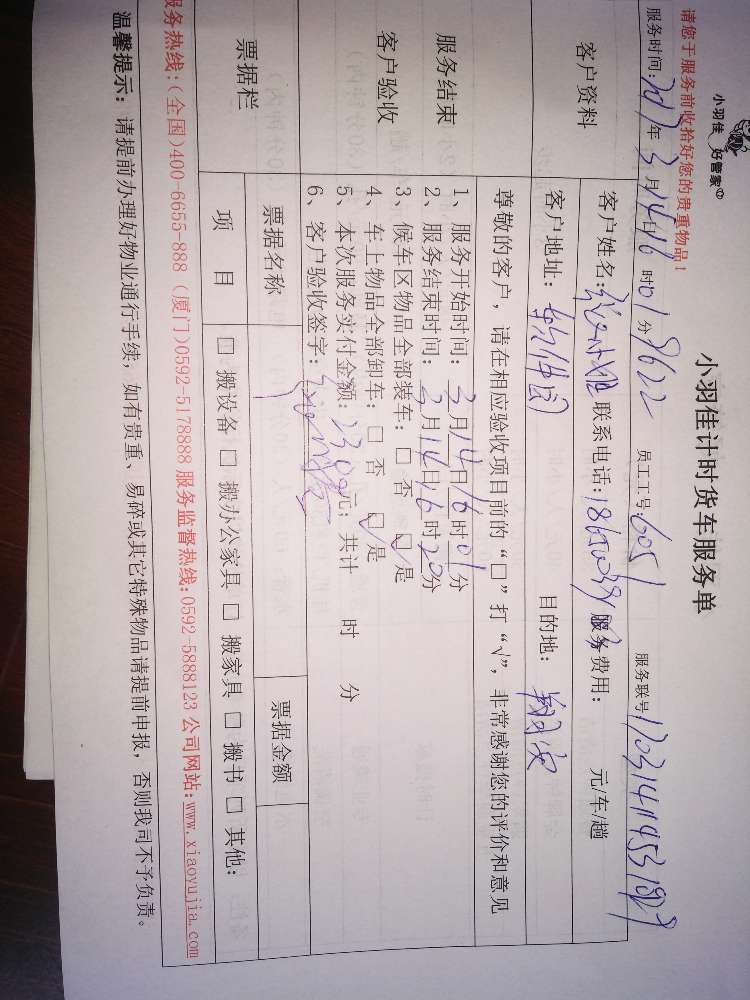 小羽佳
好管家
小羽佳计时货车服务单
请您于服务前收拾好您的贵重物品!
服务时间:2017年3月14日16时01分 8622 员工工号:6051 服务联号
客户资料
客户姓名: 小姐 联系电话: 服务费用: 元/车/趟
客户地址: 目的地: 翔安
尊敬的客户,请在相应验收项目前的“□”打“√”,非常感谢您的评价和意见
服务结束
客户验收
1、服务开始时间:3月14日16时01分
2、服务结束时间:3月14日16时20分
3、候车区物品全部装车:□ 否 ☑ 是
4、车上物品全部卸车:□ 否 ☑ 是
5、本次服务实付金额: 元;共计 时 分
6、客户验收签字:
票据栏
票据名称 票据金额
项 目 □ 搬设备 □ 搬办公家具 □ 搬家具 □ 搬书 □ 其他:
服务热线:(全国)400-6655-888 (厦门)0592-5178888 服务监督热线:0592-5888123 公司网站:www.xiaoyujia.com
温馨提示:请提前办理好物业通行手续,如有贵重、易碎或其它特殊物品请提前申报,否则我司不予负责。